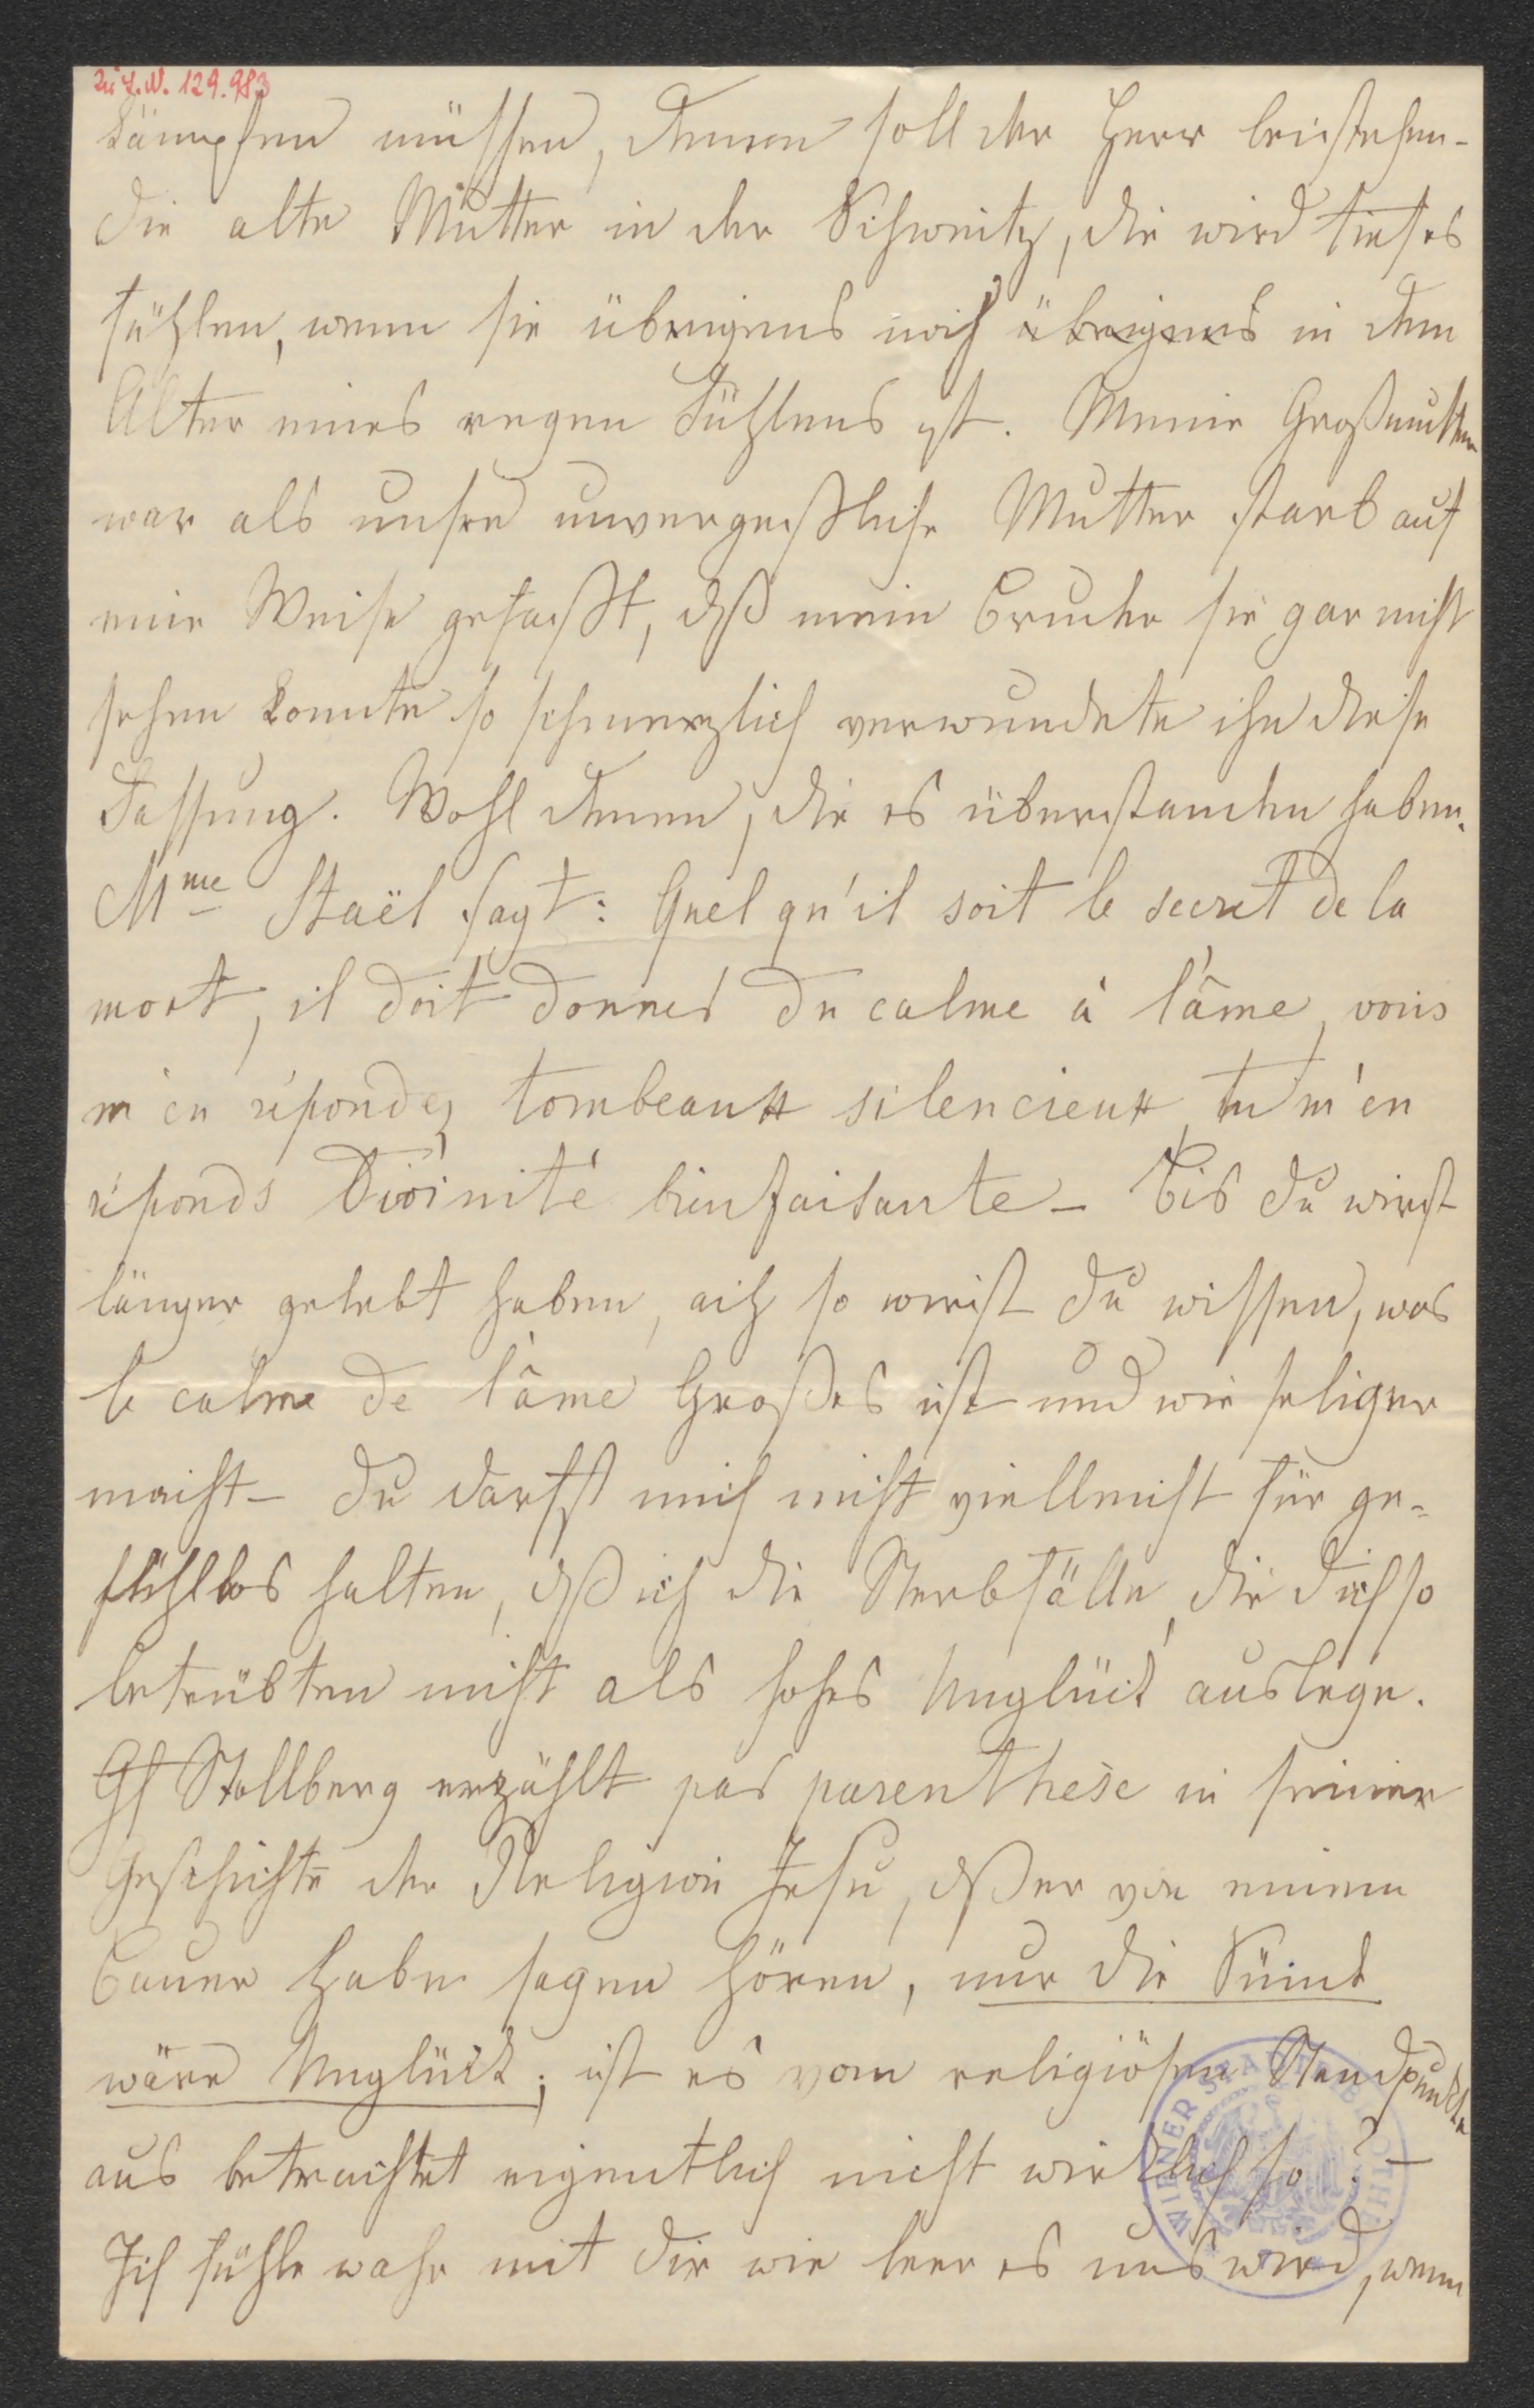 zu I.N. 129.983
kämpfen müssen, denen soll der Herr beistehen-
die alte Mutter in der Schweitz, die wird tiefes
fühlen, wenn sie übrigens noch übrigens in dem
Alter eines regen Fühlens ist. Meine Großmutter
war als unsre unvergeßliche Mutter starb auf
eine Weise gefaßt, dß mein Bruder sie gar nicht
sehen konnte so schmerzlich verwundete ihn diese
Fassung. Wohl denen, die es überstanden haben.
Mme Staël sagt: Quel qu'il soit le secret de la
mort, il doit donner du calme à l'âme, vous
m'en répondez tombeaux silencieux, tu m'en
réponds Divinité bienfaisante - Bis du wirst
länger gelebt haben, ach so wirst du wissen, was
le calme de l'âme Großes ist und wie seliger
macht - du darfst mich nicht vielleicht für ge-
fühllos halten, dß ich die Sterbfälle, die dich so
betrübten nicht als hohes Unglück auslege.
Gf Stollberg erzählt par parenthese in seiner
Geschichte der Religion Jesu, dß er von einem
Bauer habe sagen hören, nur die Sünd
wäre Unglück; ist es vom religiösen Standpunkte
aus betrachtet eigentlich nicht wirklich so? -
Ich fühle wahr mit dir wie leer es uns wird, wenn
WIENER STADTBIBLIOTHEK